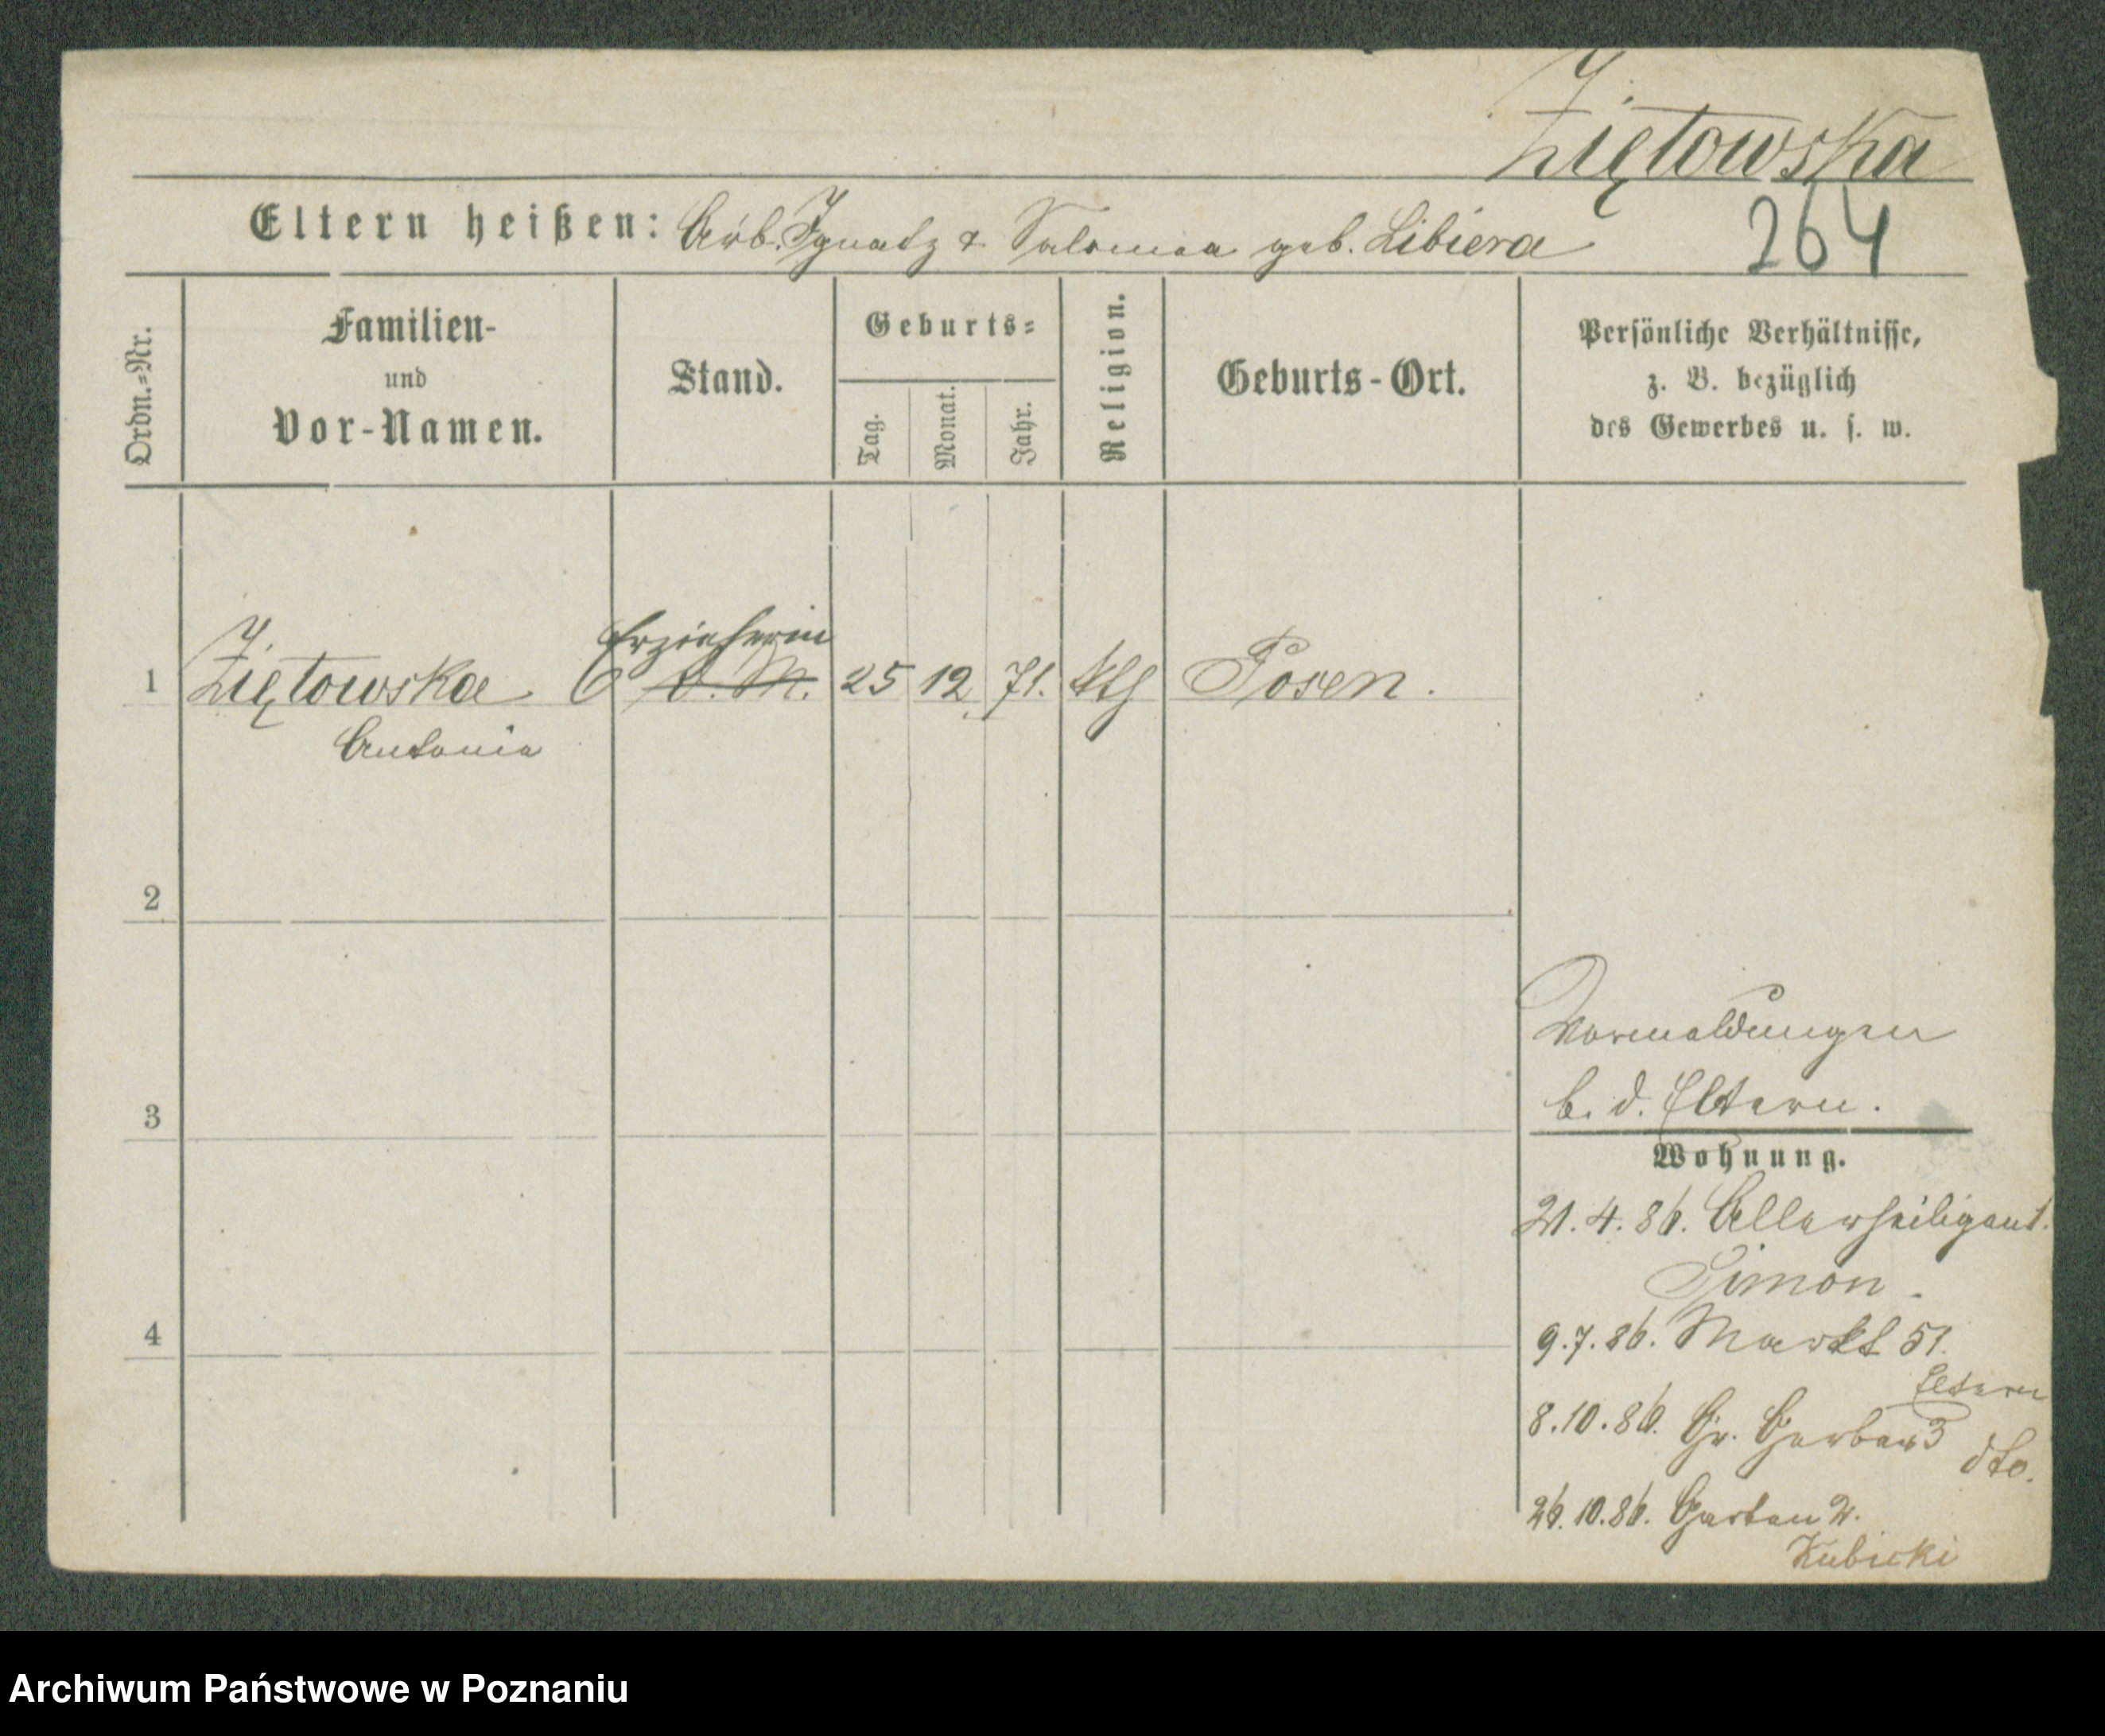 Ziętowska
Eltern heißen: Arb. Ignatz & Salomea geb. Libiera
264
Ordn.-Nr.
Familien-
und
Vor-Namen.
Stand.
Geburts-
Tag.
Monat.
Jahr.
Religion.
Geburts-Ort.
Persönliche Verhältnisse,
z. B. bezüglich
des Gewerbes u. s. w.
Erzieherin
1 Ziętowska D. M. 25 12 71. kth Posen.
Antonia
2
3
4
Vormeldungen
b. d. Eltern.
Wohnung.
21. 4. 86. Allerheiligenst.
Simon.
9. 7. 86. Markt 51.
Eltern
8. 10. 86. Gr. Gerber 3
dto.
26. 10. 86. Garten 2.
Kubicki
Archiwum Państwowe w Poznaniu